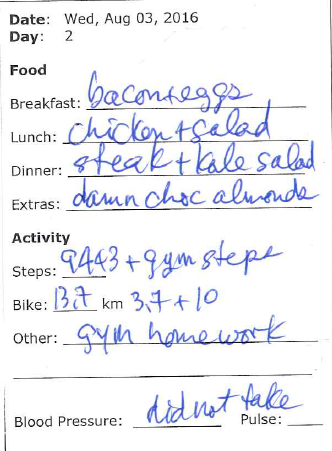 Date: Wed, Aug 03, 2016
Day: 2
Food
Breakfast: bacon+eggs
Lunch: chicken + salad
Dinner: steak + kale salad
Extras: damn choc almonds
Activity
Steps: 9443 + gym steps
Bike: 13.7 km 3.7 + 10
Other: gym homework
did not take
Blood Pressure: Pulse: